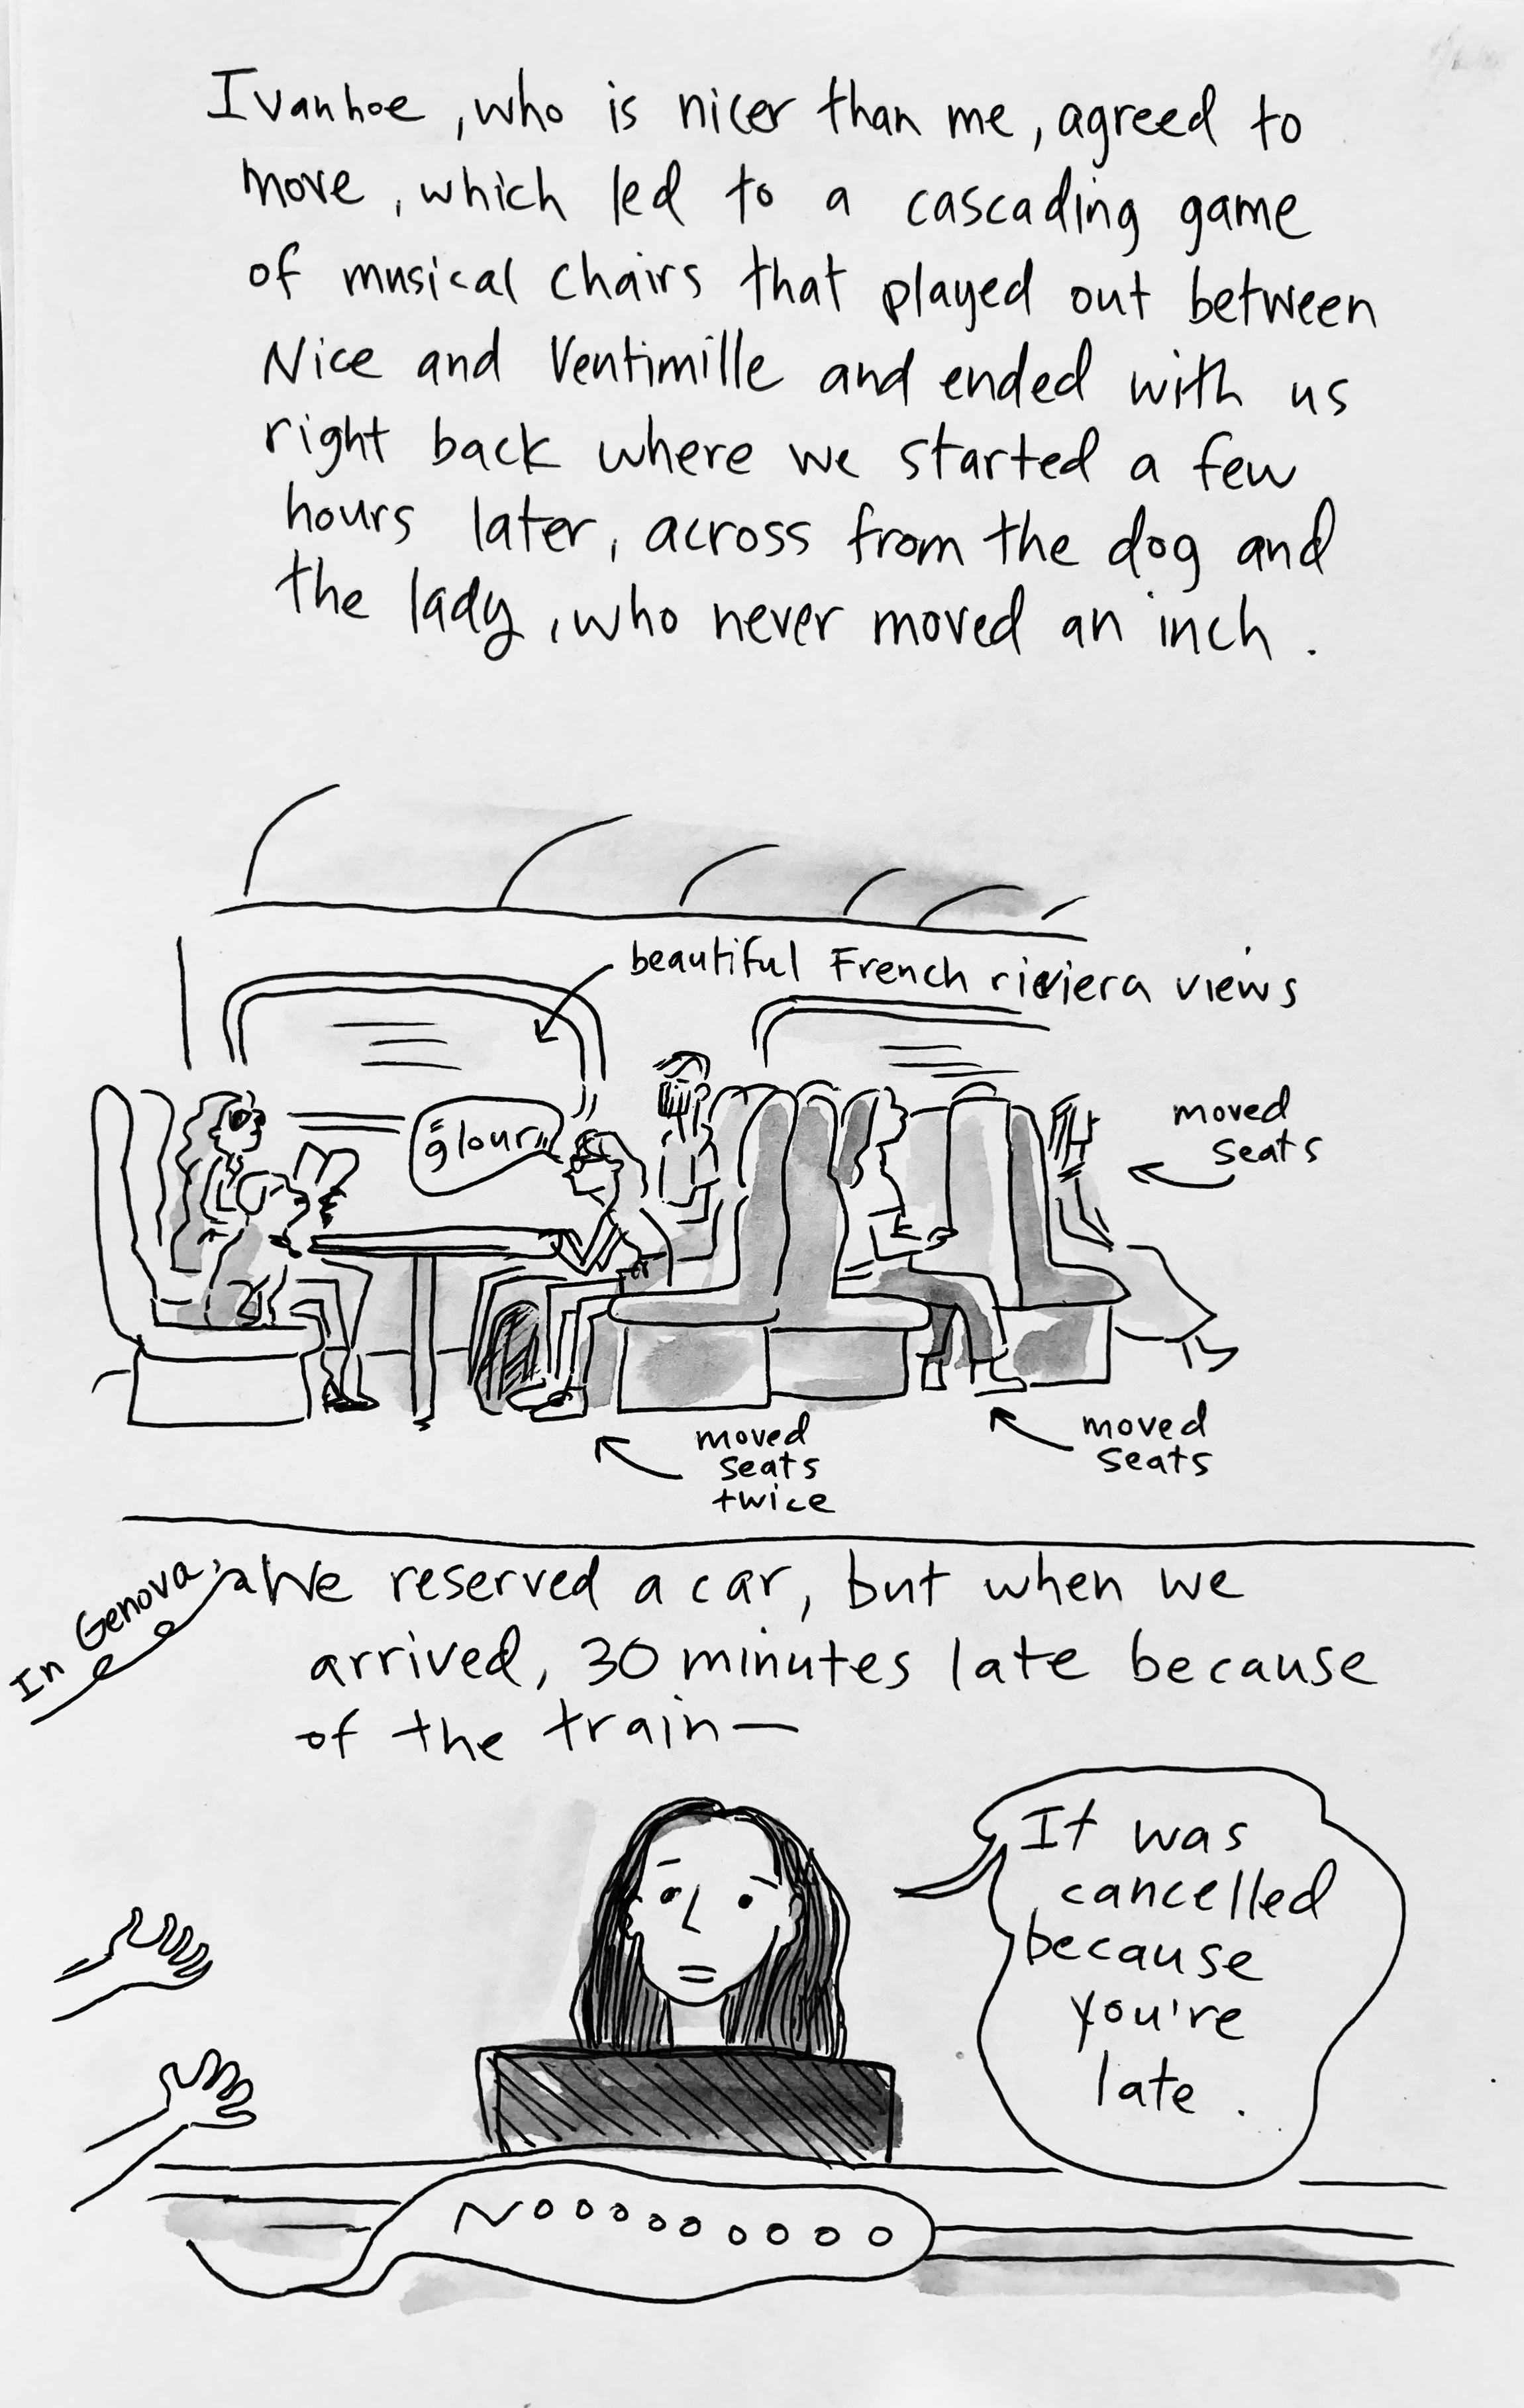 Ivanhoe, who is nicer than me, agreed to
move, which led to a cascading game
of musical chairs that played out between
Nice and Ventimille and ended with us
right back where we started a few
hours later, across from the dog and
the lady, who never moved an inch.
beautiful French riviera views
glour
moved
seats
moved
seats
twice
moved
seats
In Genova, We reserved a car, but when we
arrived, 30 minutes late because
of the train—
It was
cancelled
because
you're
late.
Noooooooooo